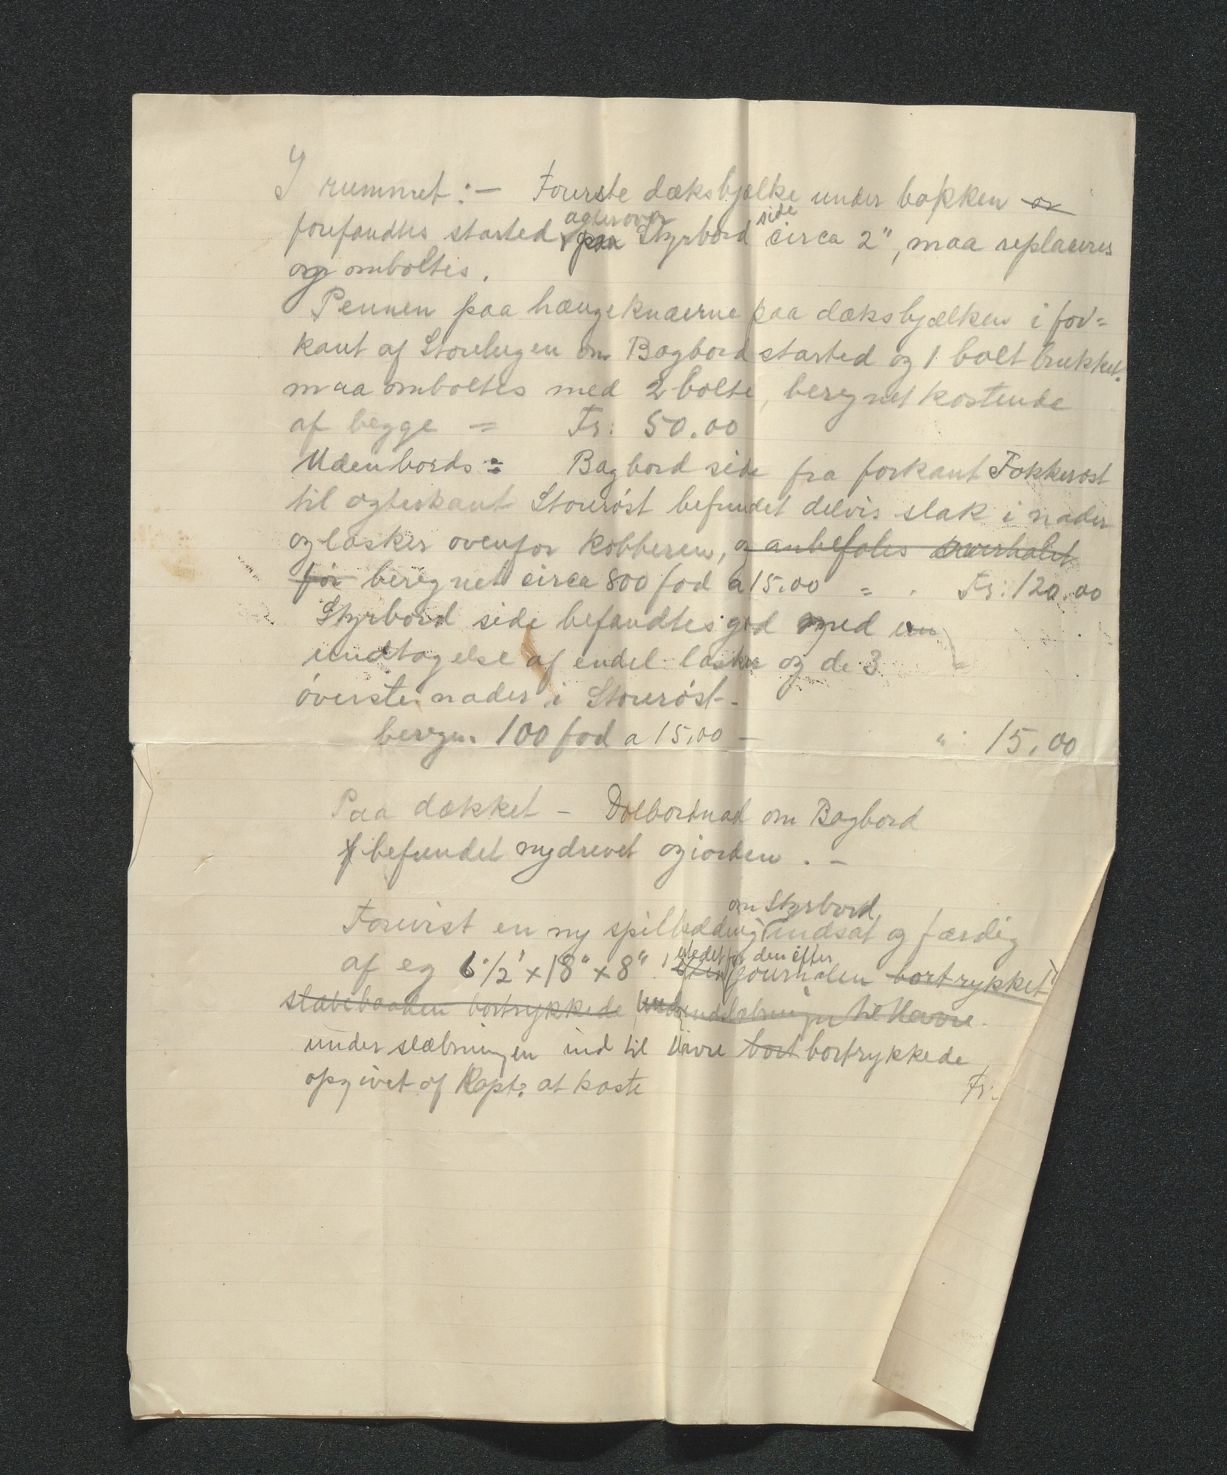 I rummet :- Fourste dæksbjælke under bakken ~~er~~
forefandtes started agterover ~~paa~~ Styrbord side circa 2", maa replaceres
og omboltes.
Pennen paa hængeknæerne paa dæksbjælken i for=
kant af Storelugen om Bagbord started og 1 bolt brukket.
maa omboltes med 2 bolte, beregnet kostende
af begge = Fr: 50.00
Udenbords = Bagbord side fra forkant Fokkerøst
til agterkant Storerøst befundet delvis slak i nader
og lasker ovenfor kobberen, ~~og anbefales overhalet~~
~~før~~ beregnet circa 800 fod a 15.00 = . Fr: 120.00
Styrbord side befandtes god med ~~en~~
undtagelse af endel lasker og de 3
överste nader i Storerøst.
beregn. 100 fod a 15,00 - " 15,00
Paa dækket - Dolbordnad om Bagbord
befundet nydrevet og iorden . -
Forevist en ny spilbedding om Styrbord indsat og færdig
af eg 6 1/2' x 18" x 8" istedet for den efter journalen ~~bortrykket~~
~~slæbebaaden bortrykkede~~ ~~til Havre~~.
under slæbningen ind til Havre ~~bort~~ bortrykkede
opgivet af Kapt: at koste Fr: